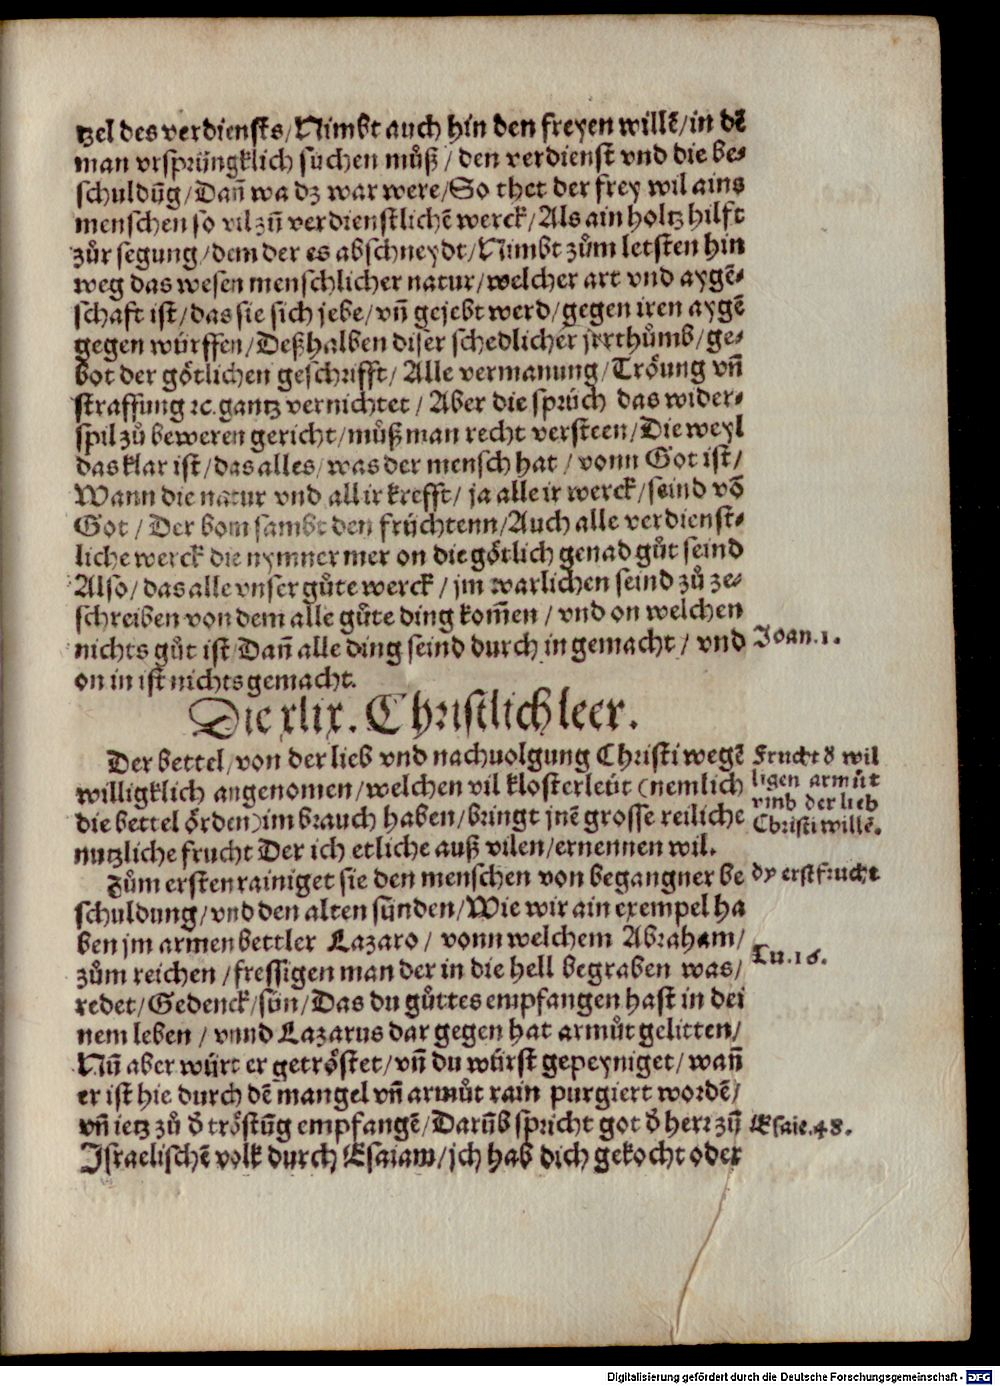 tzel des verdiensts/Nimbt auch hin den freyen willẽ/in dẽ
man vrsprüngklich suchen můß/ den verdienst vnd die be-
schuldũg/Dañ wa dz war were/So thet der frey wil ains
menschen so vil zů verdienstlichẽ werck/Als ain holtz hilft
zůr segung/dem der es abschneydt/Nimbt zům letsten hin
weg das wesen menschlicher natur/welcher art vnd aygẽ-
schaft ist/das sie sich jebe/vñ gejebt werd/gegen iren aygẽ
gegen würffen/Deßhalben diser schedlicher jrrthůmb/ge-
bot der götlichen geschrifft/ Alle vermanung/Tröung vñ
straffung ꝛc. gantz vernichtet/ Aber die sprüch das wider-
spil zů beweren gericht/můß man recht versteen/Die weyl
das klar ist/das alles/was der mensch hat/ vonn Got ist/
Wann die natur vnd all ir krefft/ ja alle ir werck/seind võ
Got/ Der bom sambt den früchtenn/Auch alle verdienst-
liche werck die nymner mer on die götlich genad gůt seind
Also/das alle vnser gůte werck/ jm warlichen seind zů ze-
schreiben von dem alle gůte ding kom̃en/ vnd on welchen
nichts gůt ist Dañ alle ding seind durch in gemacht/ vnd
on in ist nichts gemacht.
Joan.1.
Die xlix. Christlich leer.
Der bettel/von der lieb vnd nachuolgung Christi wegẽ
willigklich angenomen/welchen vil klosterleüt (nemlich
die bettel örden) im brauch haben/bringt jnẽ grosse reiliche
nutzliche frucht Der ich etliche auß vilen/ernennen wil.
Frucht d̕ wil
ligen armůt
vmb der lieb
Christi willẽ.
Zům ersten rainiget sie den menschen von begangner be
schuldung/vnd den alten sünden/Wie wir ain exempel ha
ben jm armen bettler Lazaro/ vonn welchem Abraham/
zům reichen/fressigen man der in die hell begraben was/
redet/Gedenck/sün/Das du gůttes empfangen hast in dei
nem leben/ vnnd Lazarus dar gegen hat armůt gelitten/
Nũ aber würt er getröstet/vñ du würst gepeyniget/wañ
er ist hie durch dẽ mangel vñ armůt rain purgiert wordẽ/
vñ ietz zů d̕ tröstũg empfangẽ/Darũb spricht got d̕ herr zů
Israelischẽ volk durch Esaiam/jch hab dich gekocht oder
dy erst frucht
Lu.16.
Esaie.48.
Digitalisierung gefördert durch die Deutsche Forschungsgemeinschaft - DFG